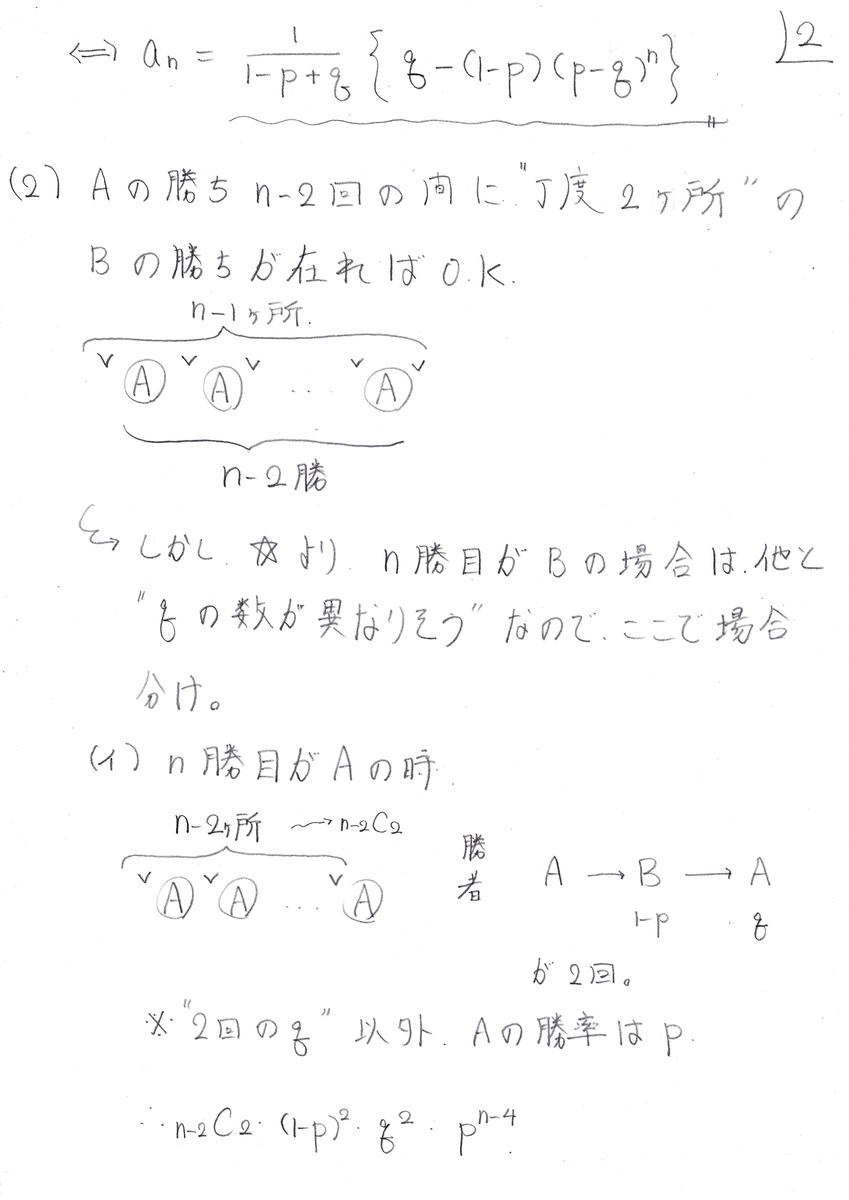 ⇔ aₙ = 1/(1-p+q) {q-(1-p)(p-q)ⁿ}
2
(2) Aの勝ち n-2回の間に"丁度 2ヶ所"の
Bの勝ちが在れば O.K.
n-1ヶ所.
∨ Ⓐ ∨ Ⓐ ∨ ... ∨ Ⓐ ∨
n-2勝
↪ しかし、☆より、n勝目がBの場合は、他と
"qの数が異なりそう"なので、ここで場合
分け。
(イ) n勝目がAの時.
n-2ヶ所 〜→ n-2C2
∨ Ⓐ ∨ Ⓐ ... ∨ Ⓐ
勝者 A → B → A
1-p q
が2回。
※ "2回のq"以外、Aの勝率はp.
∴ n-2C2・(1-p)²・q²・pⁿ⁻⁴